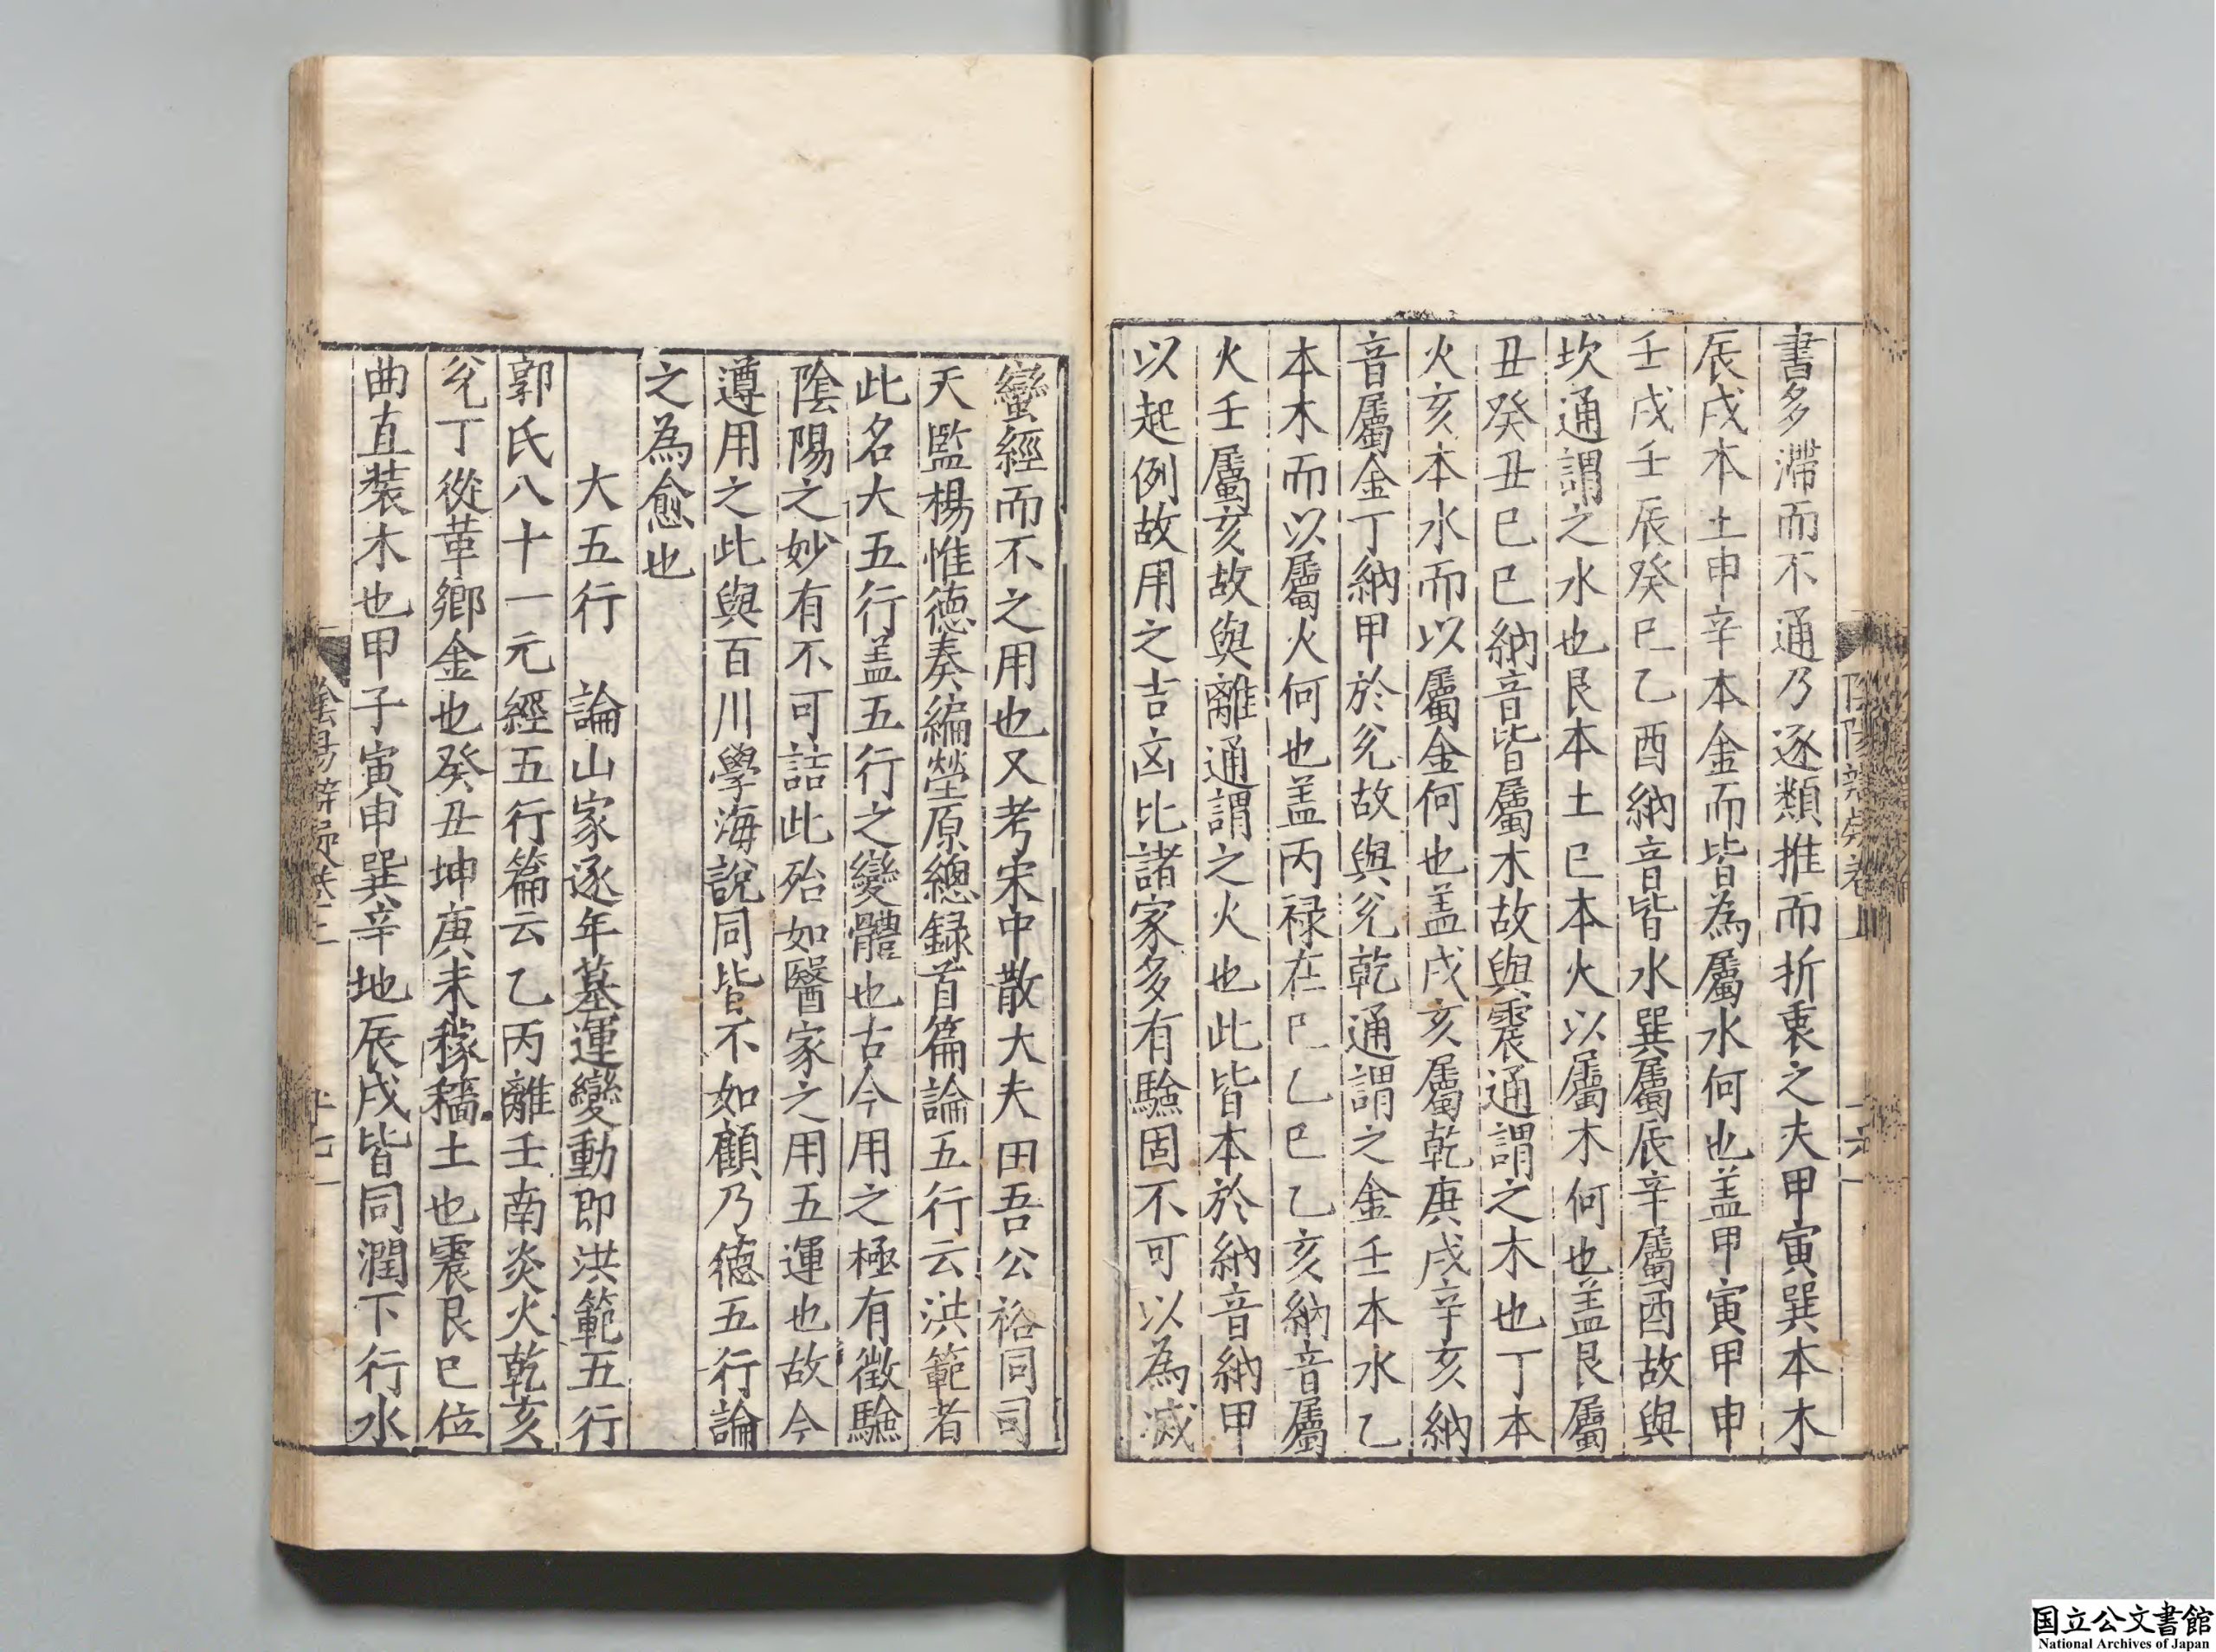 書多滯而不通乃逐類推而折衷之夫甲寅巽本木
辰戌本土申辛本金而皆為屬水何也盖甲寅甲申
壬戌壬辰癸巳乙酉納音皆水巽屬辰辛屬酉故與
坎通謂之水也艮本土巳本火以屬木何也盖艮屬
丑癸丑巳巳納音皆屬木故與震通謂之木也丁本
火亥本水而以屬金何也盖戌亥屬乾庚戌辛亥納
音屬金丁納甲於兊故與兊乾通謂之金壬本水乙
本木而以屬火何也盖丙禄在巳乙巳乙亥納音屬
火壬屬亥故與離通謂之火也此皆本於納音納甲
以起例故用之吉凶比諸家多有驗固不可以為滅
蠻經而不之用也又考宋中散大夫田吾公裕同司
天監楊惟德奏編塋原總録首篇論五行云洪範者
此名大五行盖五行之變體也古今用之極有徴驗
陰陽之妙有不可詰此殆如醫家之用五運也故今
遵用之此與百川學海說同皆不如顧乃德五行論
之為愈也
大五行 論山家逐年墓運變動即洪範五行
郭氏八十一元經五行篇云乙丙離壬南炎火乾亥
兊丁從革鄉金也癸丑坤庚未稼穡土也震艮巳位
曲直裝木也甲子寅申巽辛地辰戌皆同潤下行水
国立公文書館
National Archives of Japan